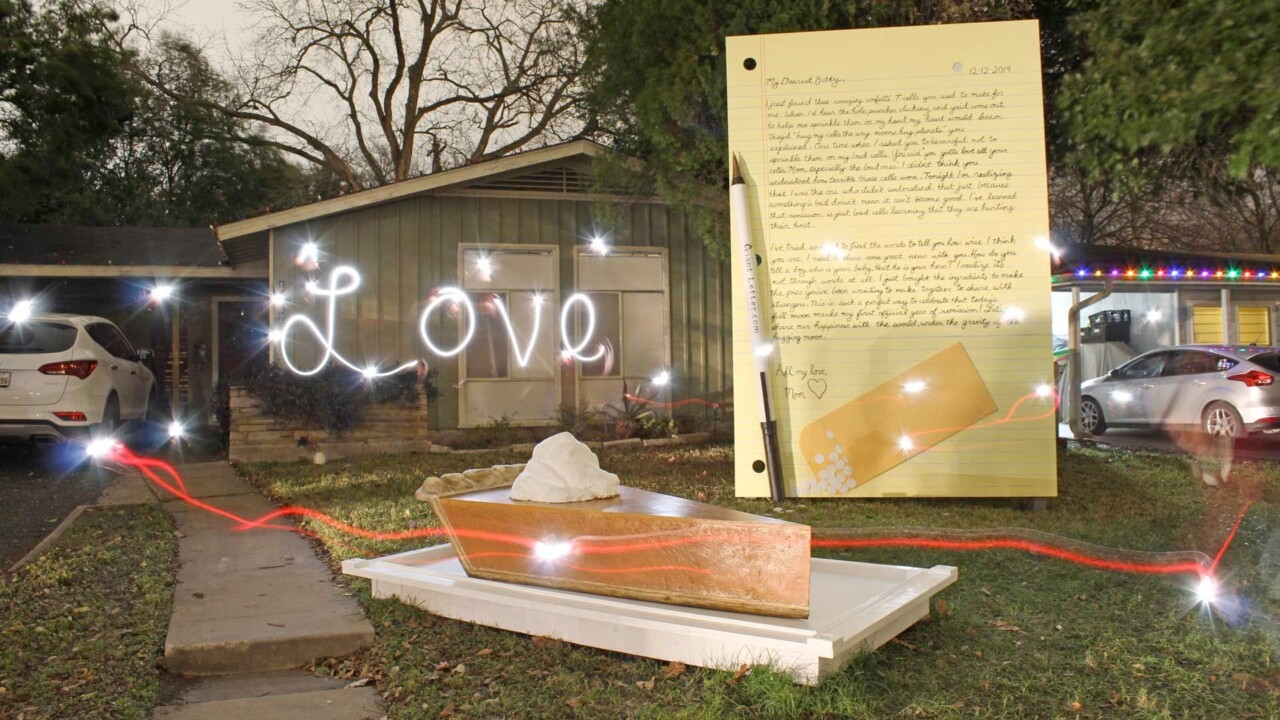 Love
12-12-2019
My Dearest Bitty,
I just found these amazing confetti T-cells you used to make for
me. When I'd hear the hole puncher clicking and you'd come out
to help me sprinkle them on my head my heart would beam.
they'd "hug my cells the way moons hug planets" you
explained. One time when I asked you to be careful not to
sprinkle them on my bad cells, you said "you gotta love all your
cells Mom, especially the bad ones." I didn't think you
understood how terrible those cells were. Tonight I'm realizing
that I was the one who didn't understand that just because
something is bad doesn't mean it can't become good. I've learned
that remission is just bad cells learning that they are hurting
their host.
I've tried so to find the words to tell you how wise I think
you are. I need to share some great news with you. How do you
tell a boy, who is your baby, that he is your hero? I realize it's
not through words at all. I just bought the ingredients to make
the pies you've been wanting to make together to share with
strangers. This is such a perfect way to celebrate that today's
full moon marks my first official year of remission! Let's
share our happiness with the world, under the gravity of the
hugging moon.
All my love,
Mom
GiantLetter.com